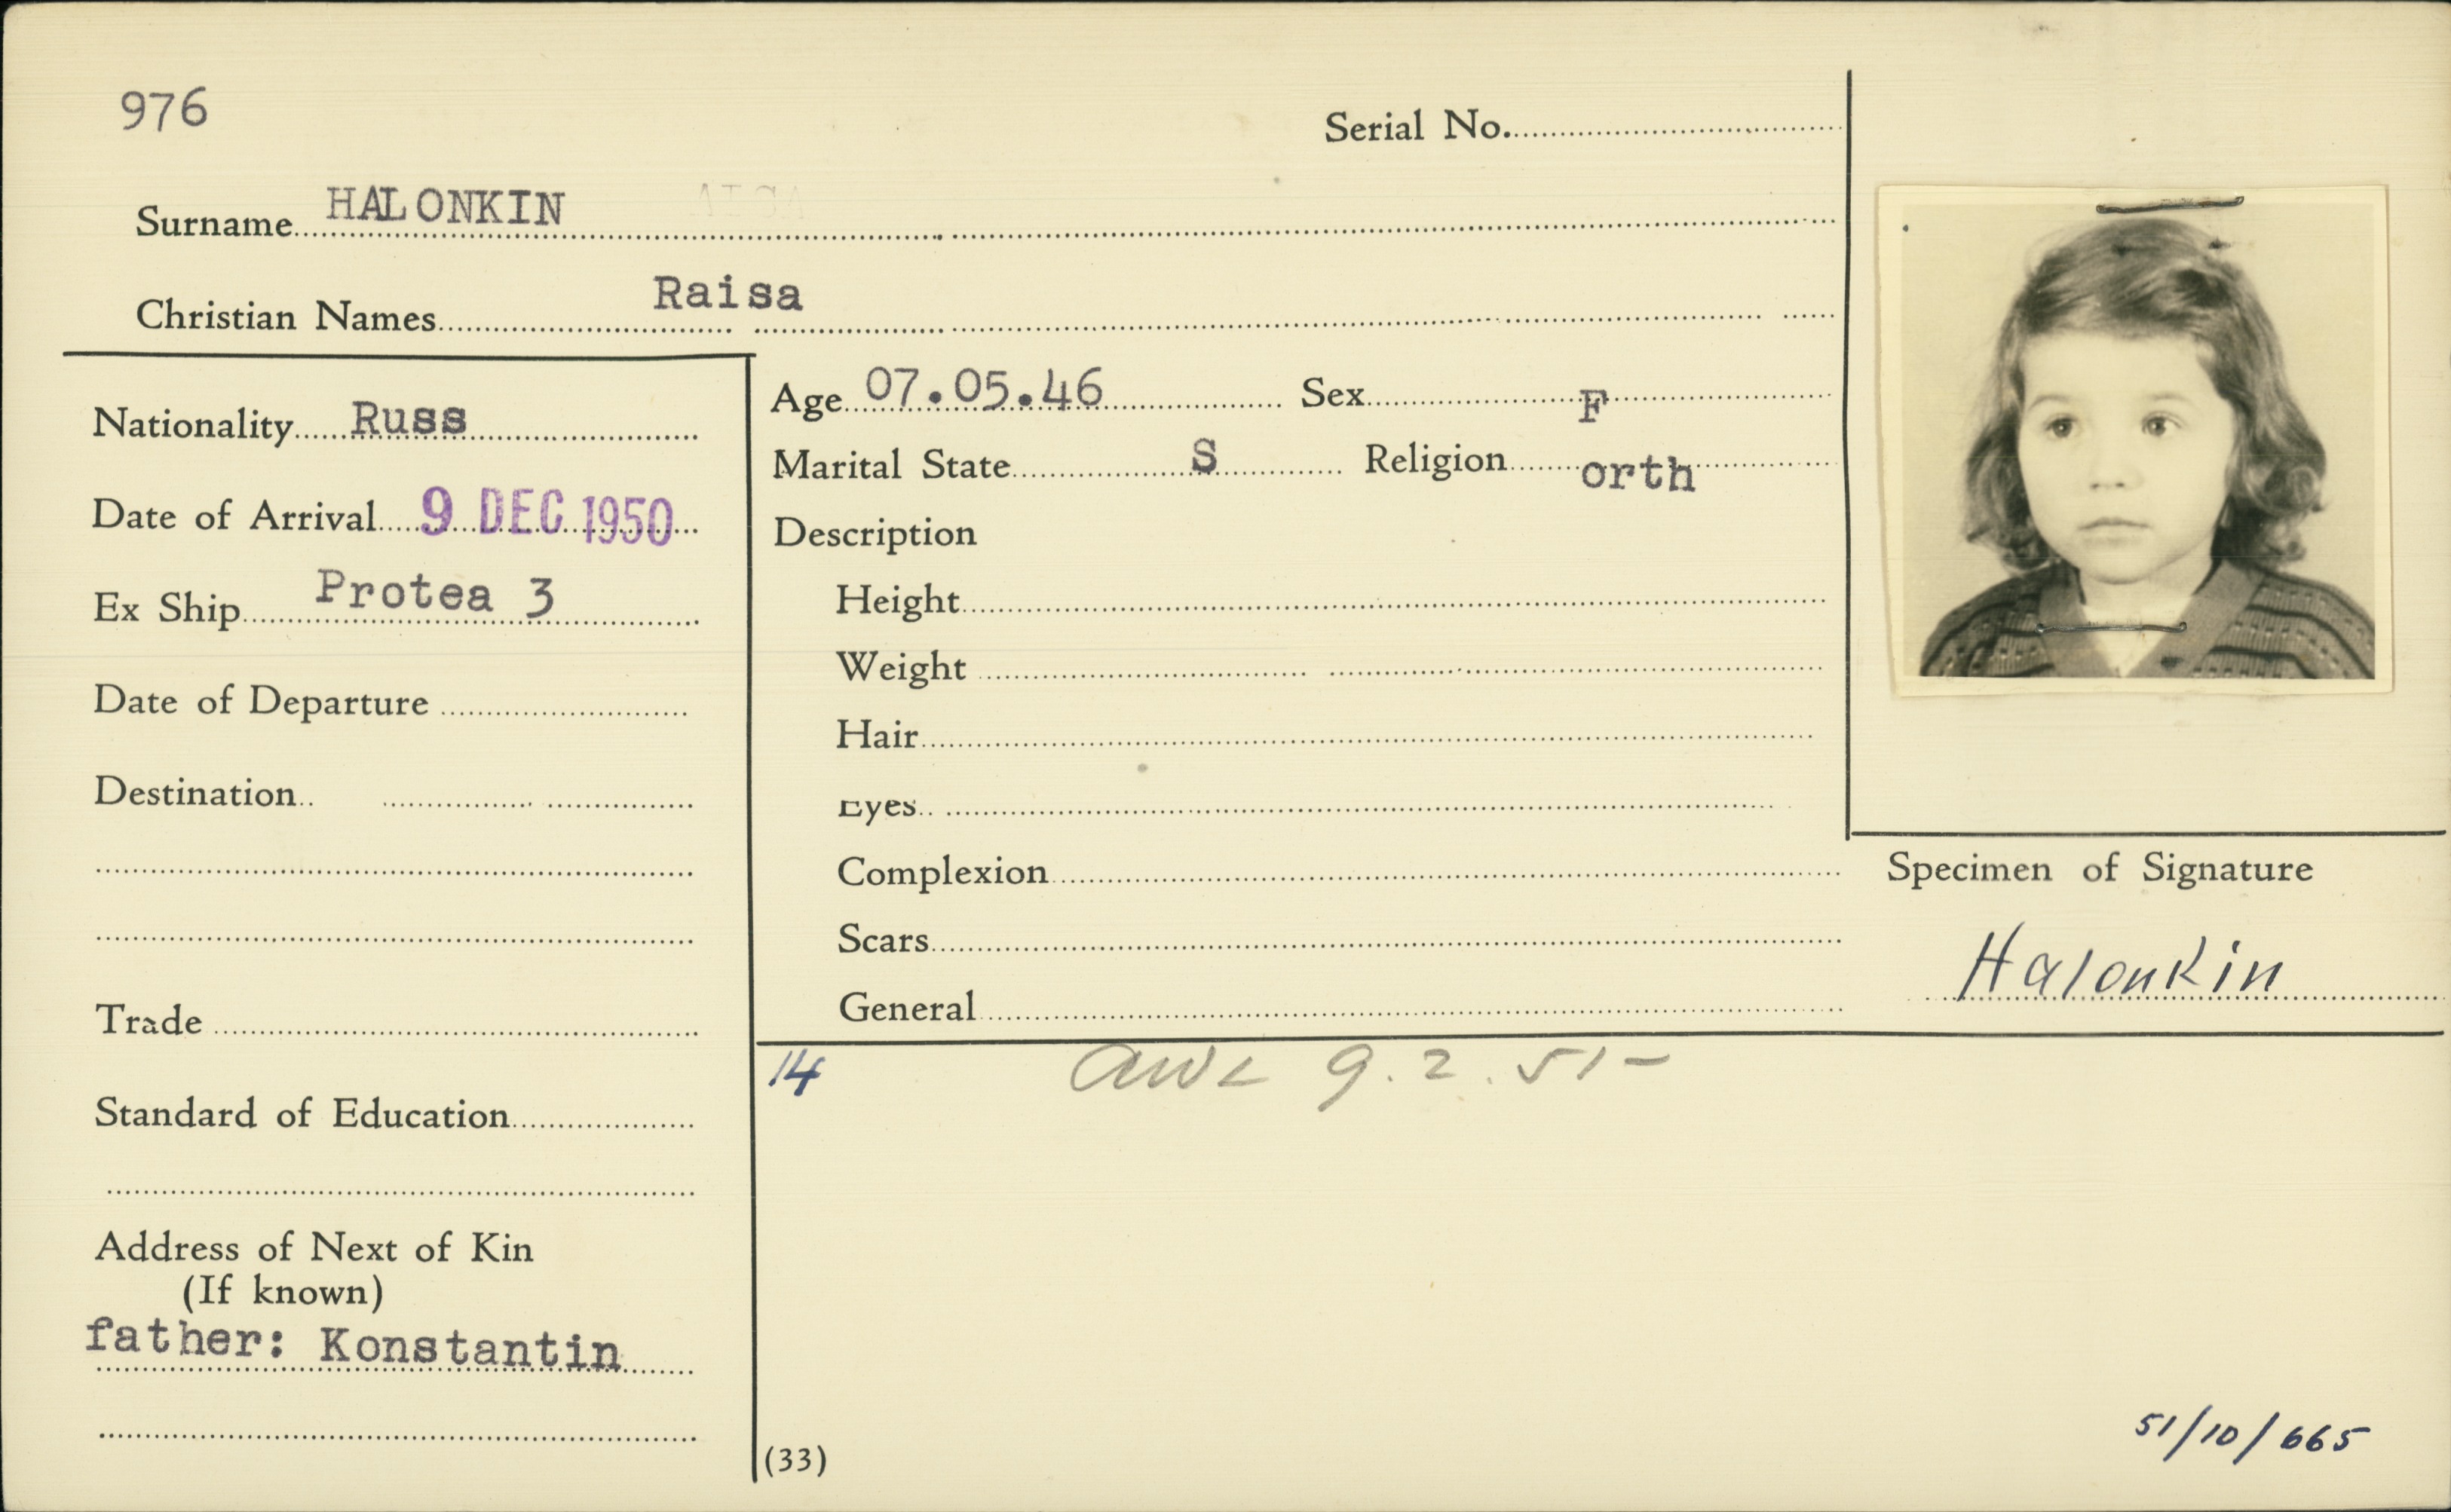 976
Serial No.
Surname HALONKIN
Christian Names Raisa
Nationality Russ
Date of Arrival 9 DEC 1950
Ex Ship Protea 3
Date of Departure
Destination
Trade
Standard of Education
Address of Next of Kin
(If known)
father: Konstantin
Age 07.05.46 Sex F
Marital State S Religion orth
Description
Height
Weight
Hair
Eyes
Complexion
Scars
General
Specimen of Signature
Halonkin
14 9.2.51
(33)
51/10/665